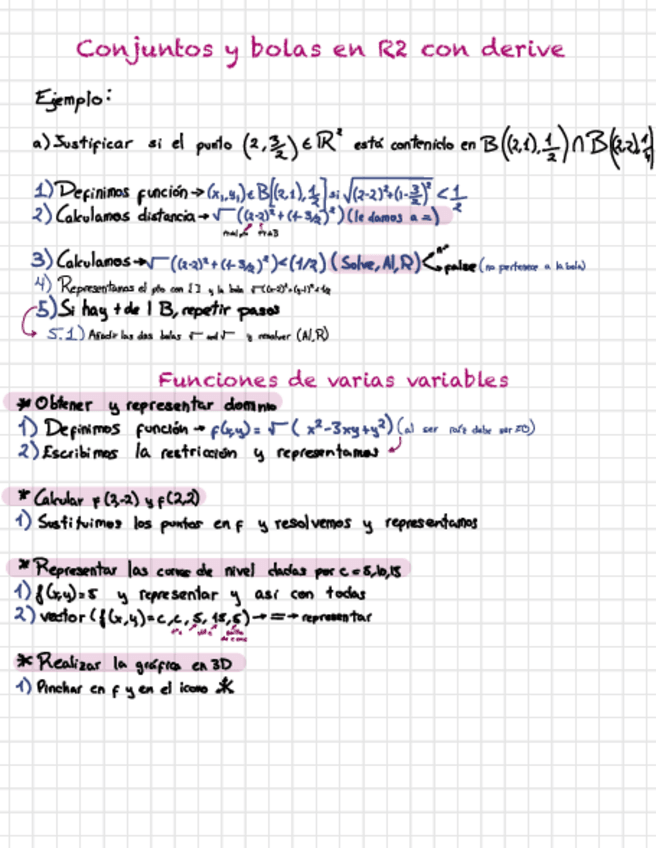 Conjuntos y bolas en R2 con derive
Ejemplo:
a) Justificar si el punto (2, 3/2) ∈ ℝ² está contenido en B((2,1), 1/2) ∩ B((2,2), 1/4)
1) Definimos función → (x₁,y₁) ∈ B[(2,1), 1/2] si √((2-2)²+(1-3/2)²) < 1/2
2) Calculamos distancia → √((2-2)²+(1-3/2)²) (le damos a =)
3) Calculamos → √((2-2)²+(1-3/2)²)<(1/2) (Solve, Al, R) < false (no pertenece a la bola)
4) Representamos el pto con [ ] y la bola √((x-2)²+(y-1)²<1/2
5) Si hay + de 1 B, repetir pasos
5.1) Añadir las dos bolas √ and √ y resolver (Al, R)
Funciones de varias variables
* Obtener y representar dominio
1) Definimos función → f(x,y) = √( x²-3xy+y²) (al ser raíz debe ser ≥0)
2) Escribimos la restricción y representamos
* Calcular f(3,-2) y f(2,2)
1) Sustituimos los puntos en f y resolvemos y representamos
* Representar las curvas de nivel dadas por c = 5,10,15
1) f(x,y)=5 y representar y así con todas
2) vector (f(x,y)=c,c,5,15,5) → = → representar
* Realizar la gráfica en 3D
1) Pinchar en f y en el icono